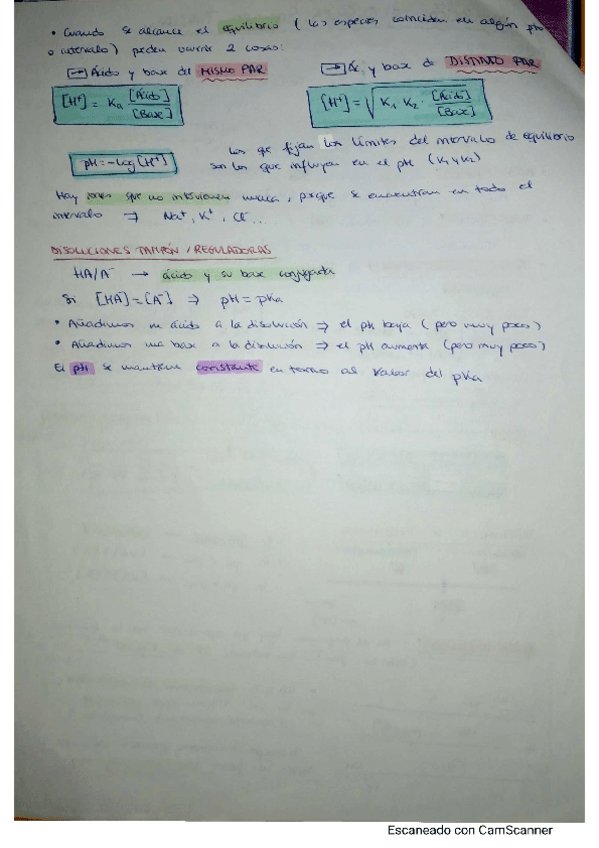 • Cuando se alcance el equilibrio (las especies coinciden en algún pH
o intervalo) pueden ocurrir 2 cosas:
→ Ácido y base del MISMO PAR
→ Ác. y base de DISTINTO PAR
[H⁺] = Ka [Ácido]/[Base]
[H⁺] = √(K₁ K₂ · [Ácido]/[Base])
pH = -log [H⁺]
Los qe fijan los límites del intervalo de equilibrio
son los que influyen en el pH (K₁ y K₂)
Hay iones que no intervienen nunca, porque se encuentran en todo el
intervalo ⇒ Na⁺, K⁺, Cl⁻...
DISOLUCIONES TAMPÓN / REGULADORAS
HA/A⁻ → ácido y su base conjugada
Si [HA] = [A⁻] ⇒ pH = pKa
• Añadimos un ácido a la disolución ⇒ el pH baja (pero muy poco)
• Añadimos una base a la disolución ⇒ el pH aumenta (pero muy poco)
El pH se mantiene constante en torno al valor del pKa
Escaneado con CamScanner